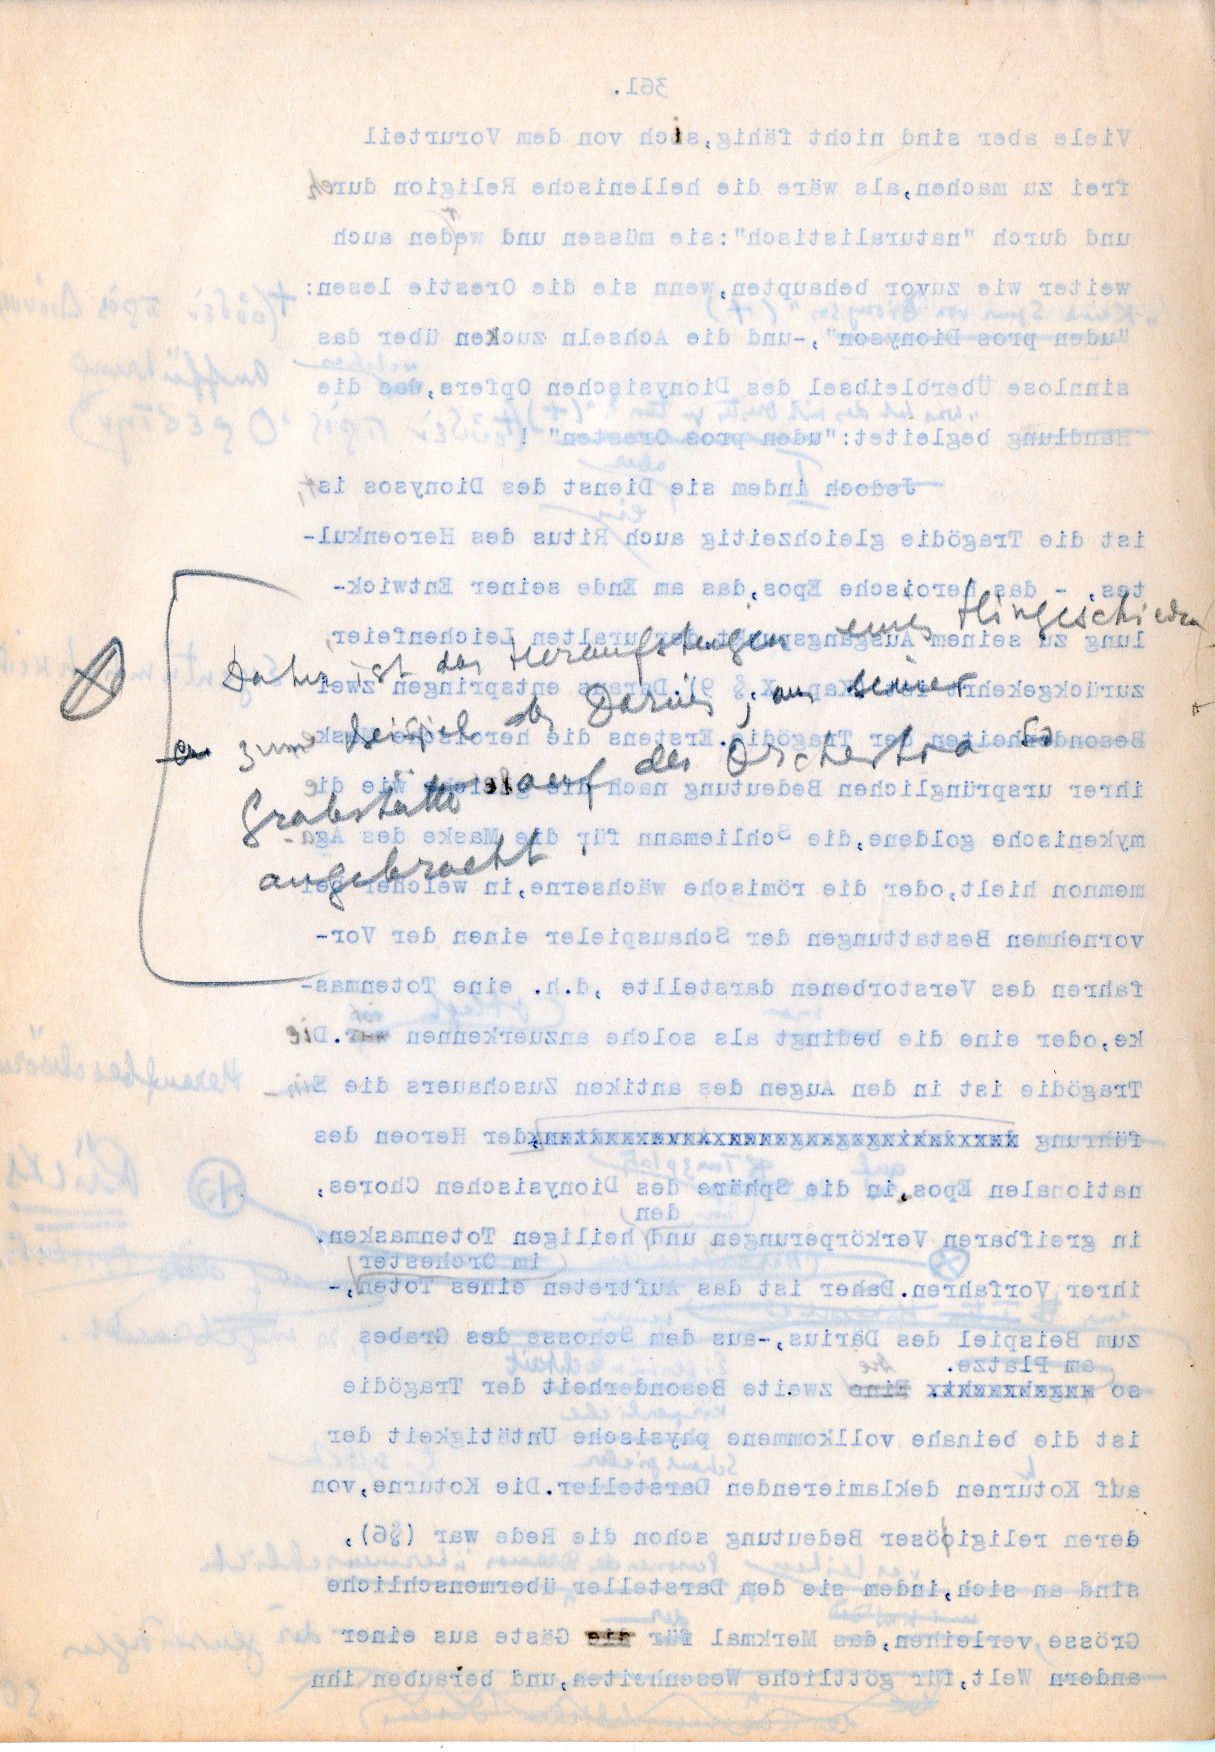 361.
Viele aber sind nicht fähig, sich von dem Vorurteil
frei zu machen, als wäre die hellenische Religion durch
und durch "naturalistisch": sie müssen und weden auch
weiter wie zuvor behaupten, wenn sie die Orestie lesen:
"uden pros Dionyson", -und die Achseln zucken über das
sinnlose Überbleibsel des Dionysischen Opfers, das die
Handlung begleitet: "uden pros Oresten" !
aber
Jedoch indem sie Dienst des Dionysos ist,
ein
ist die Tragödie gleichzeitig auch Ritus des Heroenkul-
tes, - das heroische Epos, das am Ende seiner Entwick-
lung zu seinem Ausgangspunkt der uralten Leichenfeier,
zurückgekehrt ist (Kap. X, § 9). Daraus entspringen zwei
Besonderheiten der Tragödie. Erstens die heroische Maske
ihrer ursprünglichen Bedeutung nach die gleiche wie die
mykenische goldene, die Schliemann für die Maske des Aga-
memnon hielt, oder die römische wächserne, in welcher bei
vornehmen Bestattungen der Schauspieler einen der Vor-
fahren des Verstorbenen darstellte ,d.h. eine Totenmas-
ke, oder eine die bedingt als solche anzuerkennen war. Die
Tragödie ist in den Augen des antiken Zuschauers die Ein-
führung der Heroen des
nationalen Epos, in die Sphäre des Dionysischen Chores,
den
in greifbaren Verkörperungen und heiligen Totenmasken.
im Orchester
ihrer Vorfahren. Daher ist das Auftreten eines Toten, -
zum Beispiel des Därius, -aus dem Schosse des Grabes
am Platze.
so Eine zweite Besonderheit der Tragödie
ist die beinahe vollkommene physische Untätigkeit der
auf Koturnen deklamierenden Darsteller. Die Koturne, von
deren religiöser Bedeutung schon die Rede war (§6),
sind an sich, indem sie dem Darsteller übermenschliche
Grösse, verleihen, das Merkmal für die Gäste aus einer
andern Welt, für göttliche Wesenheiten, und berauben ihn
Daher ist das Heraufsteigen eines Hingeschieden
zum Beispiel des Darius, aus seiner
Grabstätte auf der Orchestra so
angebracht.